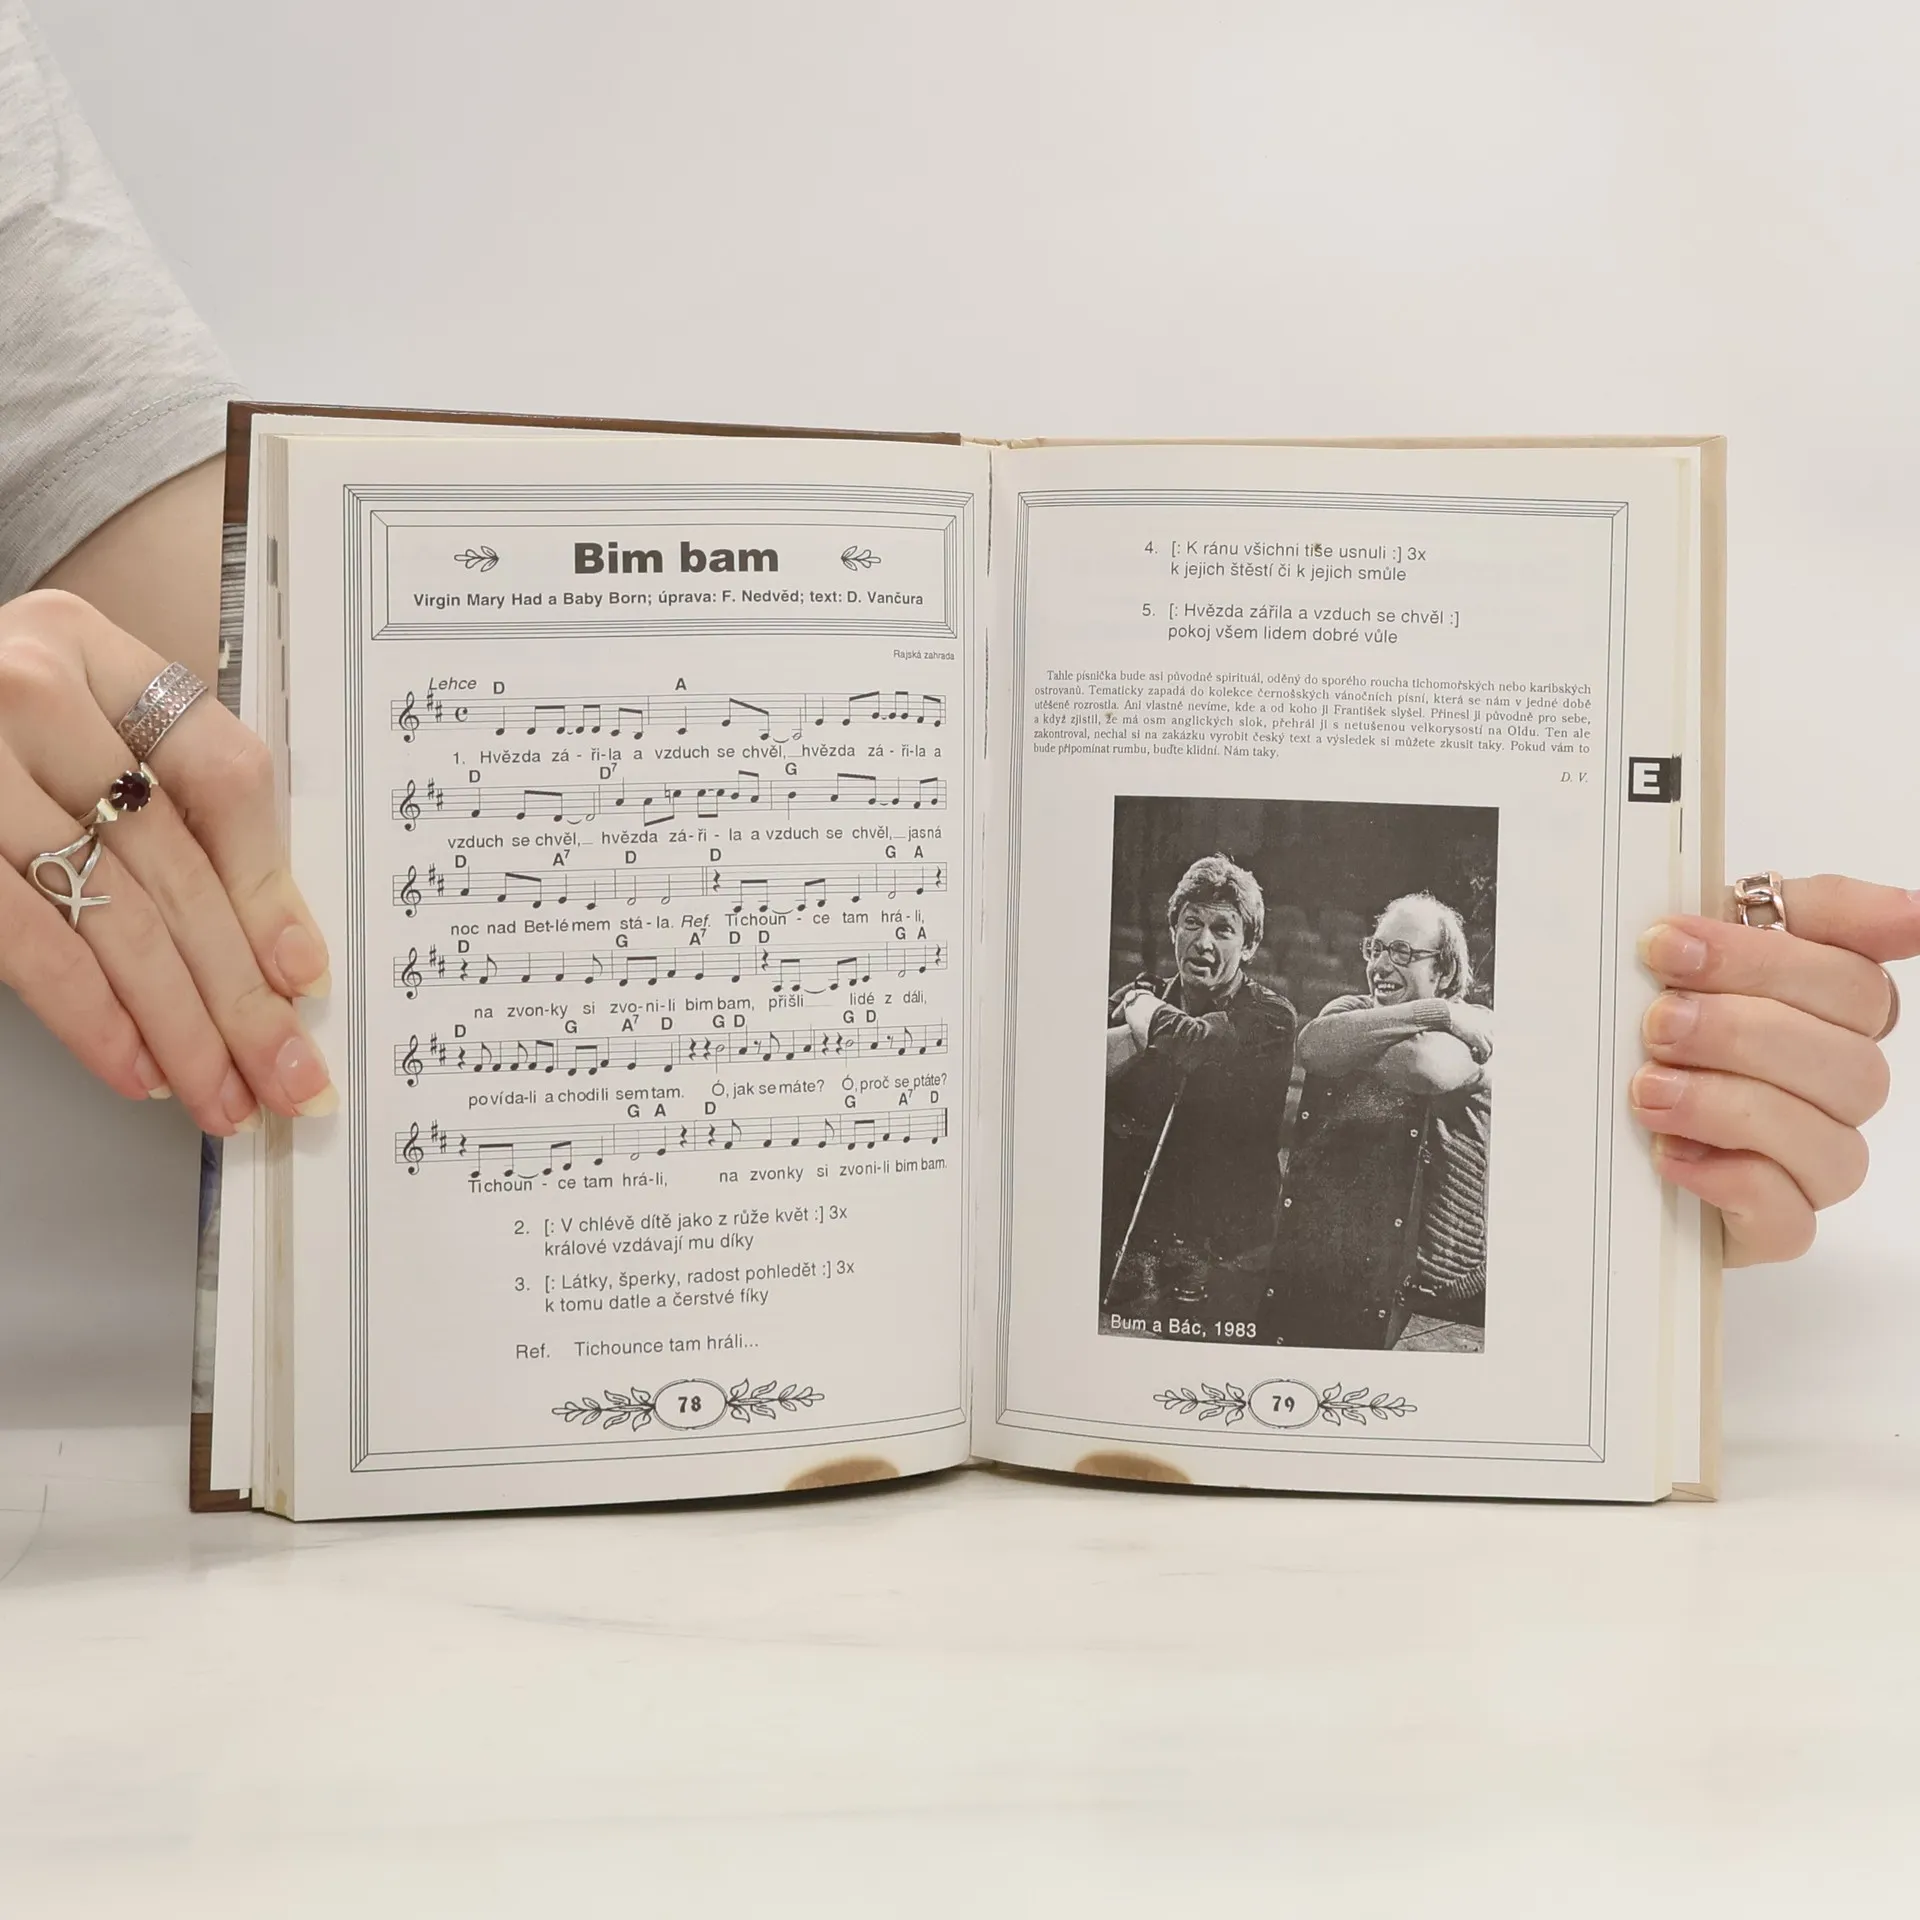 Bim bam
Virgin Mary Had a Baby Born; úprava: F. Nedvěd; text: D. Vančura
Rajská zahrada
Lehce D A
1. Hvězda zá - ři-la a vzduch se chvěl, hvězda zá - ři-la a
D D7 G
vzduch se chvěl, hvězda zá-ři - la a vzduch se chvěl, jasná
D A7 D D G A
noc nad Bet-lémem stá-la. Ref. Tichoun - ce tam hrá-li,
D G A7 D D G A
na zvon-ky si zvo-ni-li bim bam, přišli lidé z dáli,
D G A7 D G D G D
povída-li a chodili sem tam. Ó, jak se máte? Ó, proč se ptáte?
G A D G A7 D
Tichoun - ce tam hrá-li, na zvonky si zvoni-li bim bam.
2. [: V chlévě dítě jako z růže květ :] 3x
králové vzdávají mu díky
3. [: Látky, šperky, radost pohledět :] 3x
k tomu datle a čerstvé fíky
Ref. Tichounce tam hráli...
78
4. [: K ránu všichni tiše usnuli :] 3x
k jejich štěstí či k jejich smůle
5. [: Hvězda zářila a vzduch se chvěl :]
pokoj všem lidem dobré vůle
Tahle písnička bude asi původně spirituál, oděný do sporého roucha tichomořských nebo karibských
ostrovanů. Tematicky zapadá do kolekce černošských vánočních písní, která se nám v jedné době
utěšeně rozrostla. Ani vlastně nevíme, kde a od koho ji František slyšel. Přinesl ji původně pro sebe,
a když zjistil, že má osm anglických slok, přehrál ji s netušenou velkorysostí na Oldu. Ten ale
zakontroval, nechal si na zakázku vyrobit český text a výsledek si můžete zkusit taky. Pokud vám to
bude připomínat rumbu, buďte klidní. Nám taky.
D. V.
E
Bum a Bác, 1983
79